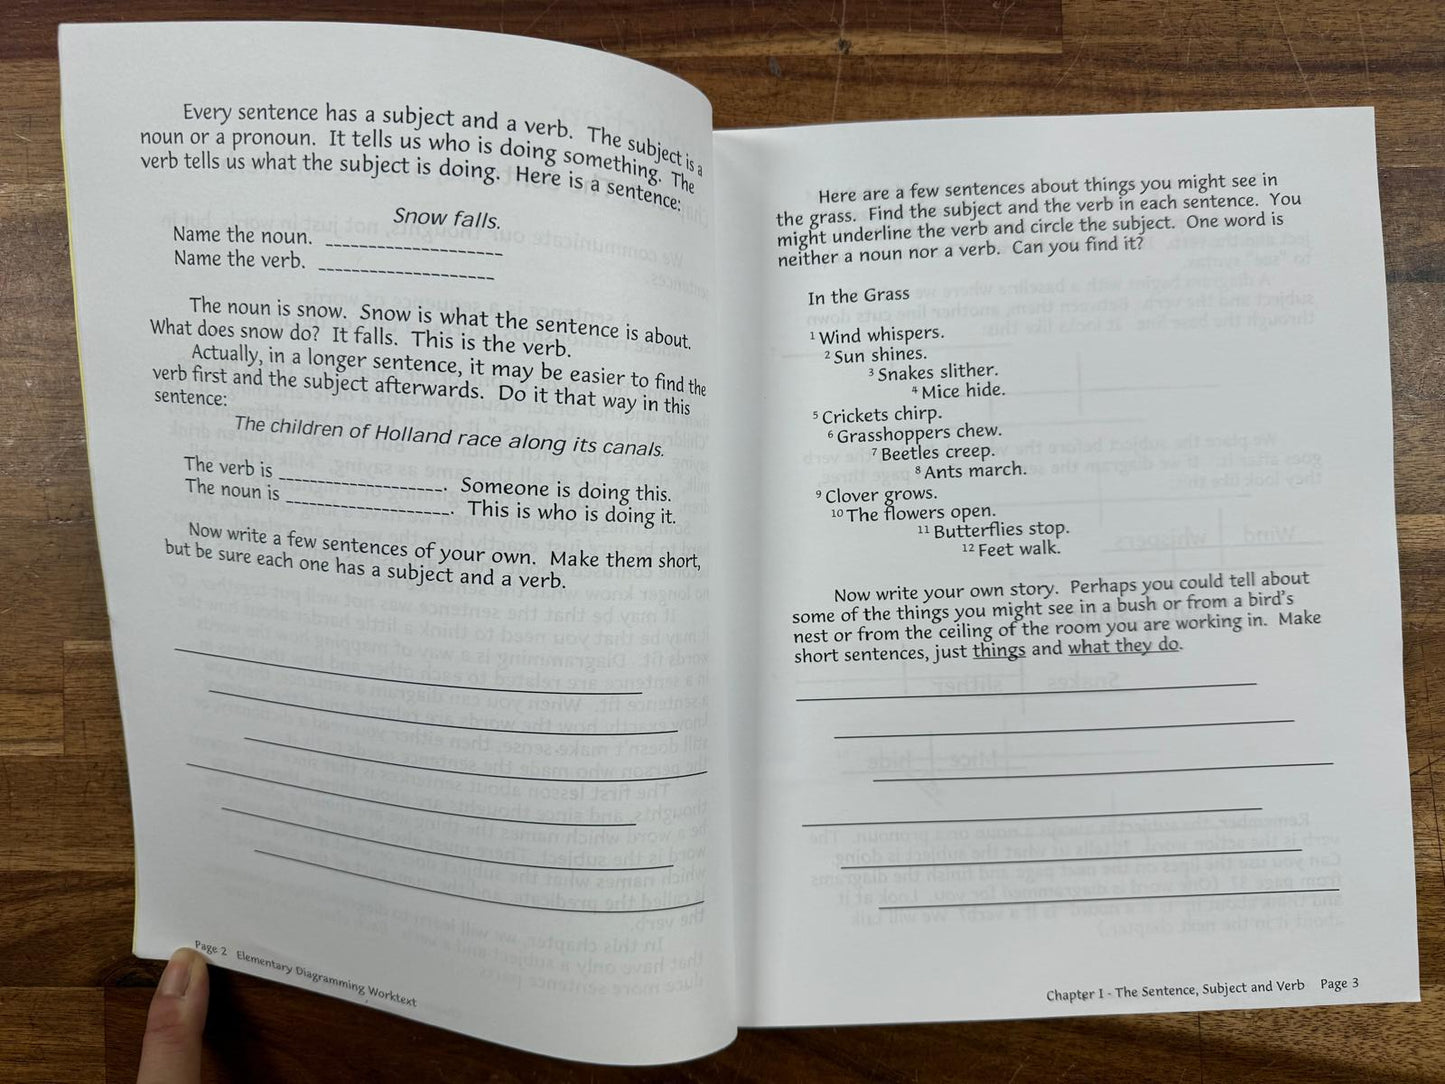 Every sentence has a subject and a verb. The subject is a
noun or a pronoun. It tells us who is doing something. The
verb tells us what the subject is doing. Here is a sentence:
Snow falls.
Name the noun. ____________________
Name the verb. ____________________
The noun is snow. Snow is what the sentence is about.
What does snow do? It falls. This is the verb.
Actually, in a longer sentence, it may be easier to find the
verb first and the subject afterwards. Do it that way in this
sentence:
The children of Holland race along its canals.
The verb is ____________________. Someone is doing this.
The noun is ____________________. This is who is doing it.
Now write a few sentences of your own. Make them short,
but be sure each one has a subject and a verb.
Page 2 Elementary Diagramming Worktext
Here are a few sentences about things you might see in
the grass. Find the subject and the verb in each sentence. You
might underline the verb and circle the subject. One word is
neither a noun nor a verb. Can you find it?
In the Grass
1 Wind whispers.
2 Sun shines.
3 Snakes slither.
4 Mice hide.
5 Crickets chirp.
6 Grasshoppers chew.
7 Beetles creep.
8 Ants march.
9 Clover grows.
10 The flowers open.
11 Butterflies stop.
12 Feet walk.
Now write your own story. Perhaps you could tell about
some of the things you might see in a bush or from a bird's
nest or from the ceiling of the room you are working in. Make
short sentences, just things and what they do.
Chapter I - The Sentence, Subject and Verb Page 3